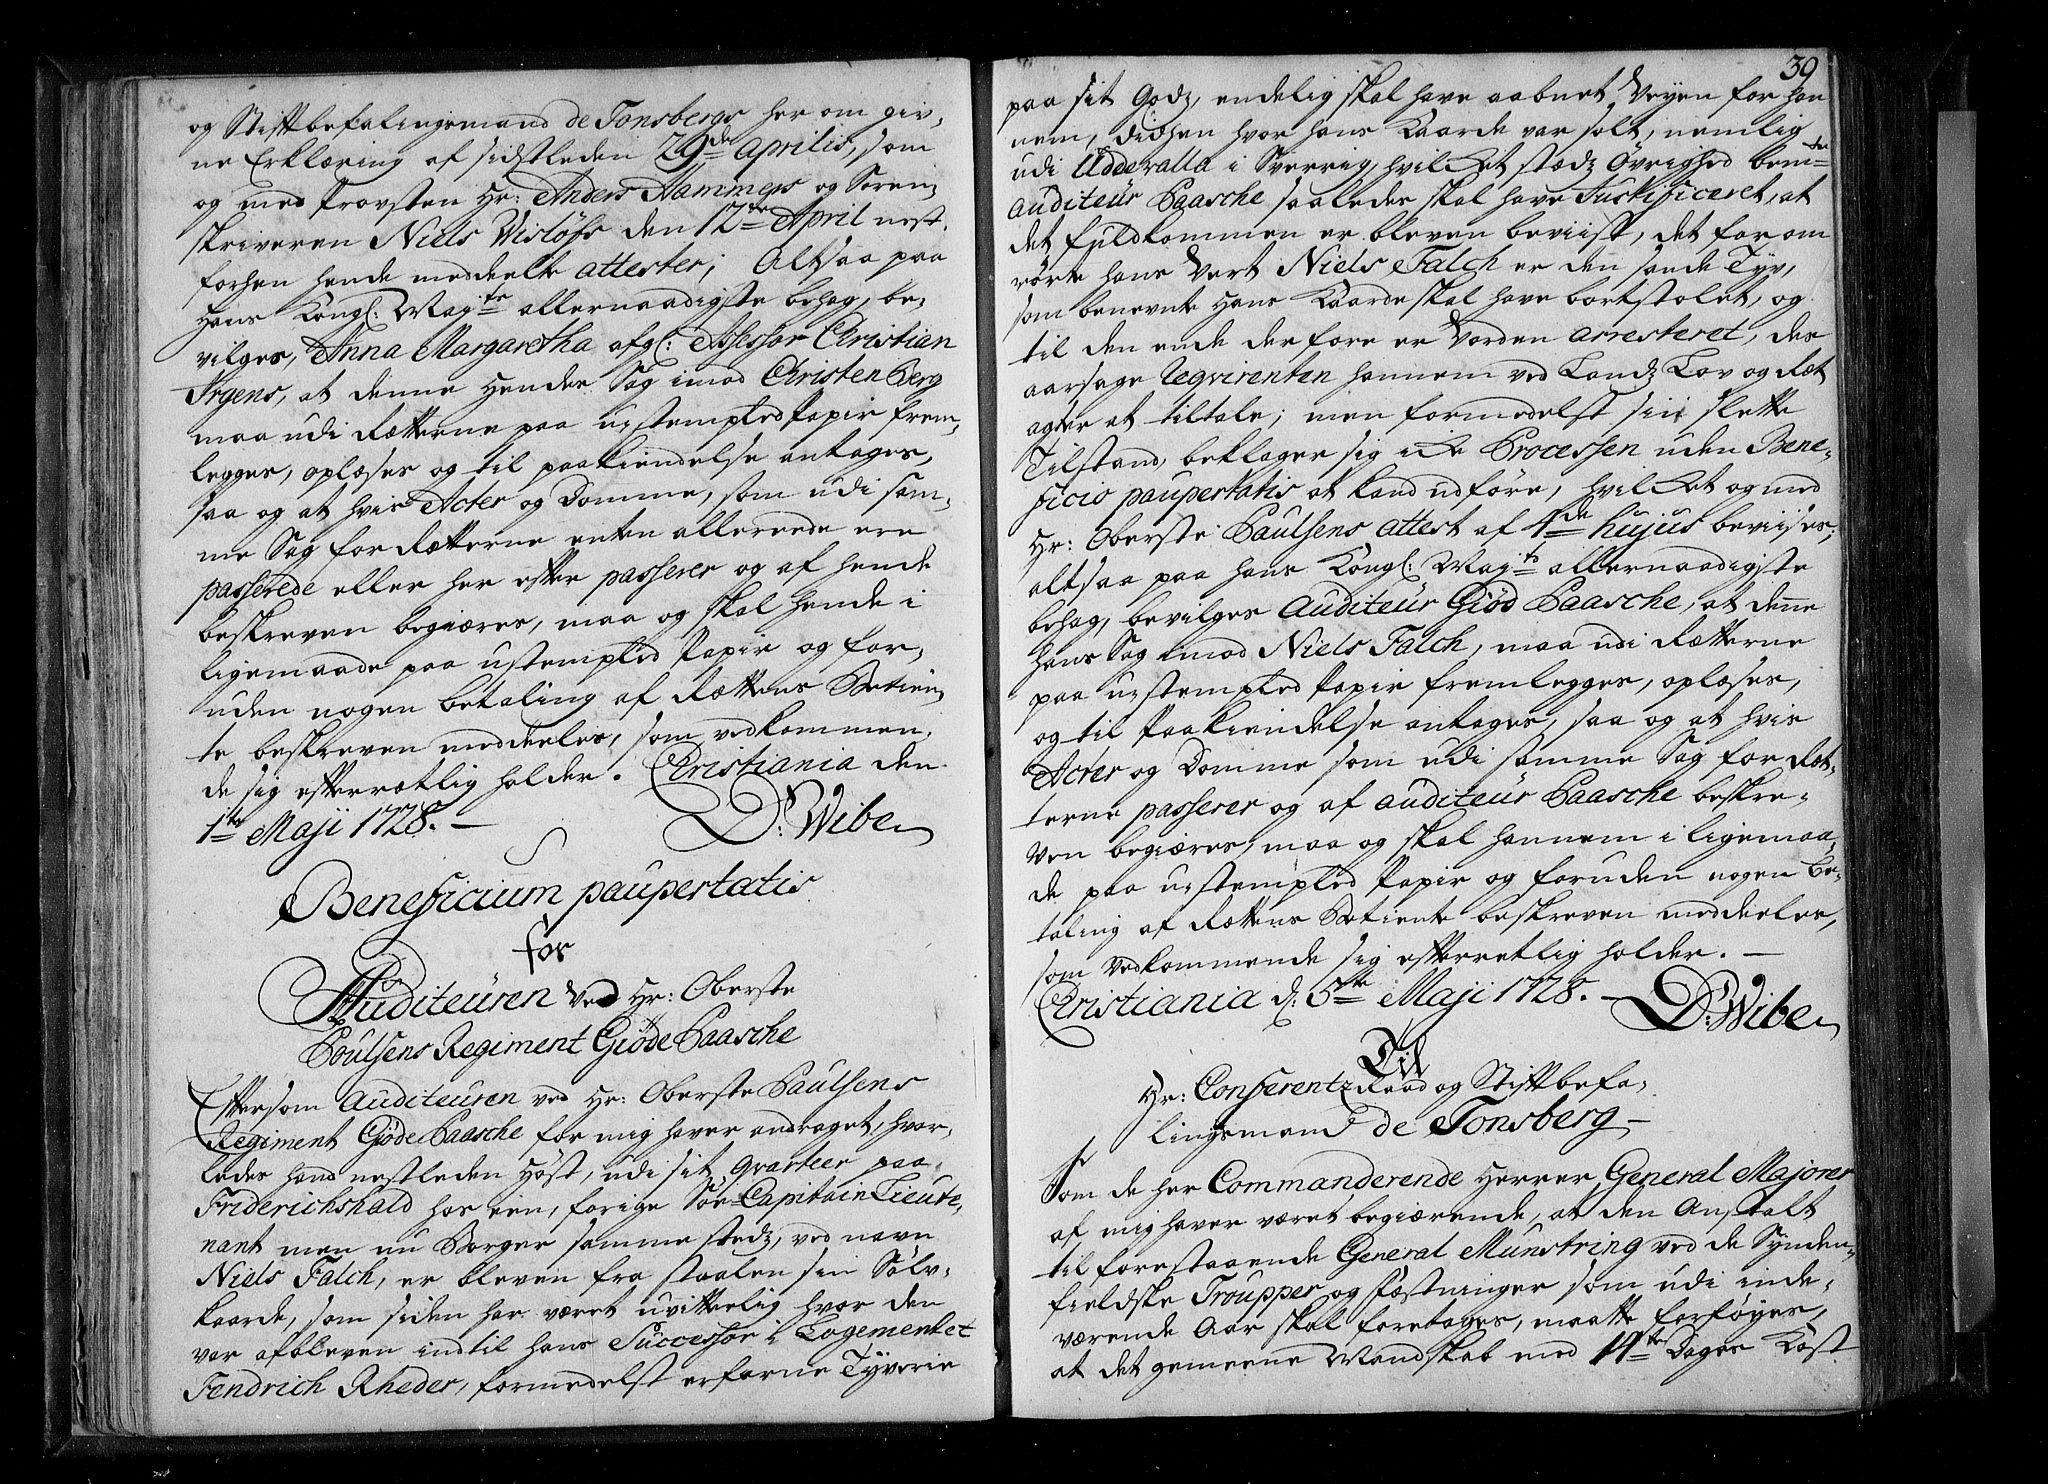 og Stiftbefalingsmand de Tonsbergs her om giv-
ne Erklæring af sidstleden 29de Aprilis, som
og med Provsten Hr: Anders Hammers og Soren-
skriveren Niels Wisløfs den 12te April nest-
forhen hende meddeelte attester; Altsaa paa
Hans Kongl: Mayts allernaadigste behag, be-
vilges, Anna Margaretha afgl: Assessor Christian
Irgens, at denne Hendes Sag imod Christen Berg
maa udi Rætterne paa ustempled Papir frem-
legges, oplæses og til paakiendelse antages,
saa og at hvis Acter og Domme, som udi sam-
me Sag for Rætterne enten allereede ere
passerede eller her efter passerer og af hende
beskreven begiæres, maa og skal hende i
ligemaade paa ustempled Papir og for-
uden nogen betaling af Rættens Betien-
te beskreven meddeeles, som vedkommen-
de sig efterretlig holder. Christiania den
1te Maji 1728. D: Wibe
Beneficium paupertatis
for
Auditeuren ved Hr: Oberste
Poulsens Regiment Giøde Paasche
Eftersom Auditeuren ved Hr: Oberste Paulsens
Regiment Giøde Paasche for mig haver andraget, hvor-
ledes hand nestleden Høst, udi sit Qvarteer paa
Friderichshald hos een, forige Søe-Capitain Lieute-
nant men nu Borger samme stedz, ved navn
Niels Falch, er bleven fra staalen sin Sølv-
kaarde, som siden har været uvitterlig hvor den
var afbleven indtil hans Successor i Logementet
Fendrich Rheder, formedelst erfarne Tyverie
39
paa sit Godz, endelig skal have aabnet Veyen for han
nem, didhen hvor hans Kaarde var solt, nemlig
udi Uddevalla i Sverrig, hvilket stædz Øvrighed bemte
Auditeur Paasche saaledes skal have Justificeret, at
det fuldkommen er bleven beviist, det for om
rørte hans Vert Niels Falch er den sande Tyv,
som benevnte Hans Kaarde skal have bortstolet, og
til den ende derfore er vorden arresteret, des
aarsage Reqvirenten hannem ved Landz Lov og Ræt
agter at tiltale; men formedelst sin slette
Tilstand, beklager sig icke Processen uden Bene-
ficio paupertatis at kand udføre, hvilket og med
Hr: Oberste Paulsens attest af 1de hujus beviises;
altsaa paa Hans Kongl: Mayts allernaadigste
behag, bevilges Auditeur Giød Paasche, at denne
hans Sag imod Niels Falch, maa udi Rætterne
paa ustempled Papir fremlegges, oplæses,
og til Paakiendelse antages, saa og at hvis
Acter og Domme som udi samme Sag for Ræt-
terne passerer og af Auditeur Paasche beskre-
ven begiæres, maa og skal hannem i ligemaa-
de paa ustempled Papir og foruden nogen Be-
taling af Rættens Betiente beskreven meddeeles,
som vedkommende sig efterretlig holder.
Christiania d: 5te Maji 1728. D: Wibe
Til
Hr: Conferentz Raad og Stiftbefa-
lingsmand de Tonsberg
Som de her Commanderende Herrer General Majorer
af mig haver været begiærende, at den Anstalt
til forestaaende General Munstring ved de Synden-
fieldske Troupper og Fæstninger som udi inde-
værende Aar skal foretages, maatte forføyes,
at det gemeene Mandskab med 14te Dages Kost